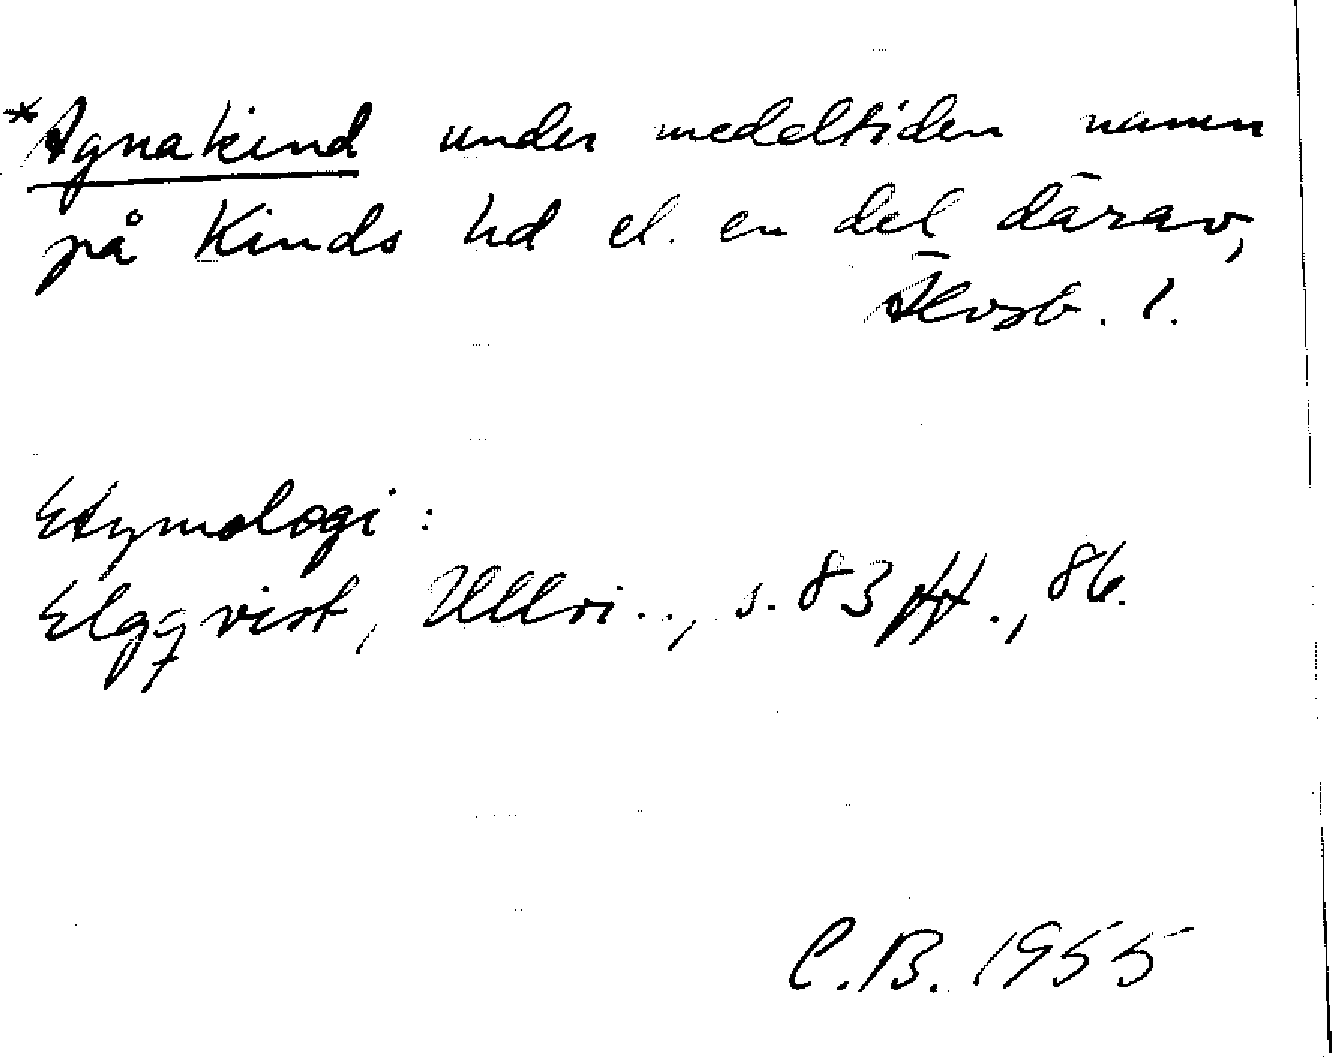 *Agnakind under medeltiden namn
på Kinds hd el. en del därav,
Älvsb. l.
Etymologi:
Elgqvist, Ullvi.., s. 83 ff., 86.
C.B. 1955